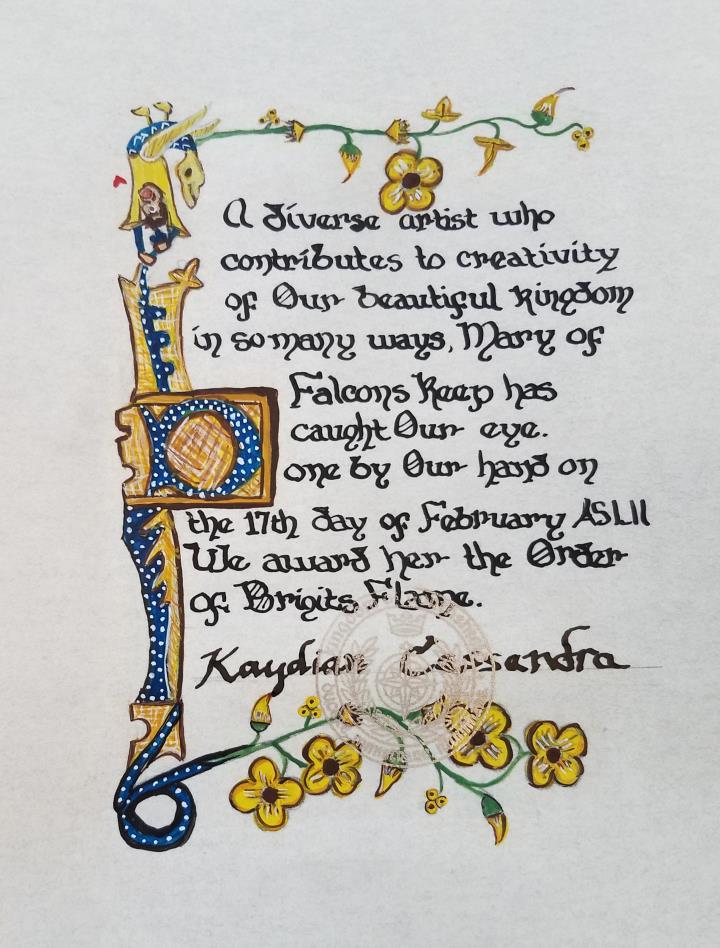 A diverse artist who
contributes to creativity
of Our beautiful kingdom
in so many ways, Mary of
Falcons Keep has
caught Our eye.
Done by Our hand on
the 17th day of February ASLII
We award her the Order
of Brigits Flame.
Kaydian Cassandra